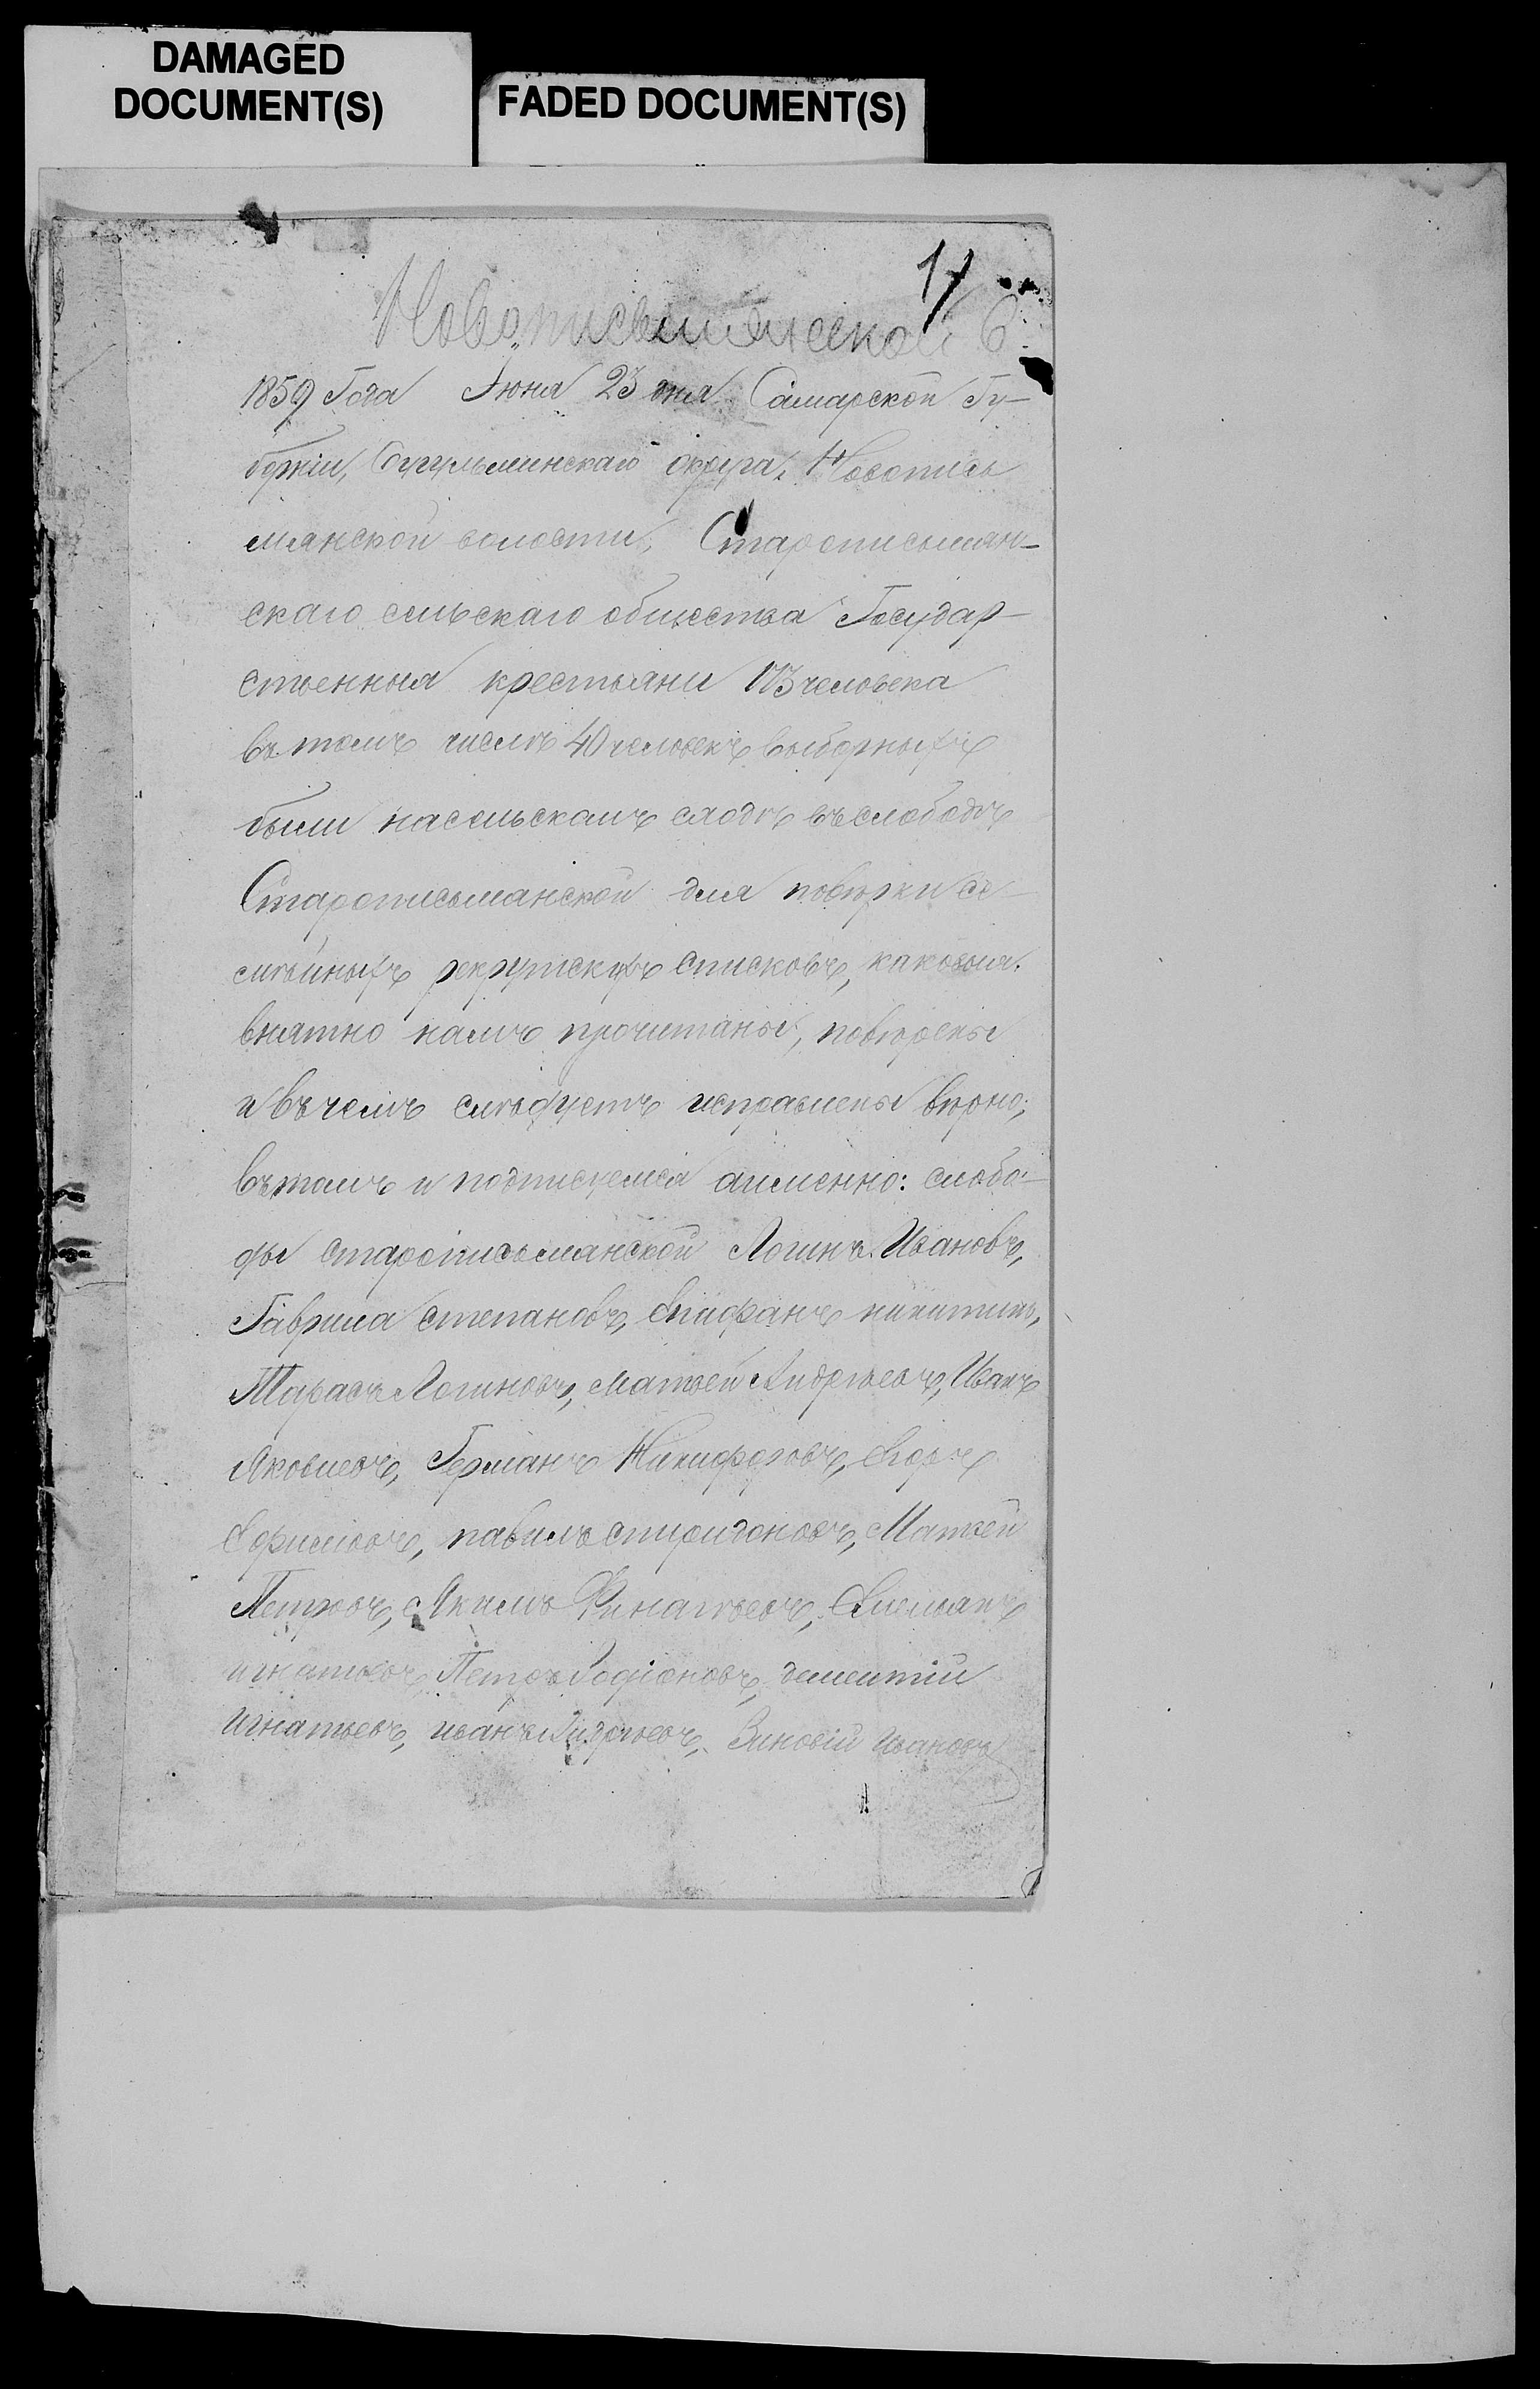 DAMAGED
DOCUMENT(S)
FADED DOCUMENT(S)
17
Новописьмянской В.
1859 Года Июня 23 дня Самарской Гу-
берніи, Бугульминскаго округа, Новопись
мянской волости, Старописьмян-
скаго сельскаго общества Государ-
ственныя крестьяни 173 человека
въ томъ числѣ 40 человекъ выборныхъ
были насельскомъ сходѣ въ слободѣ
Старописьманской для повѣрки се-
мѣйныхъ рекрутскихъ списковъ, каковыя
внятно намъ прочитаны, повѣрены
и въ чемъ следуетъ исправлены вѣрно;
въ томъ и подпискемся аименно: слобо-
ды старописьманской Логинъ Ивановъ,
Гаврила степановъ, Епифанъ никитинъ,
Тарасъ Логиновъ, Матвей Андрѣевъ, Иванъ
Яковлевъ, Германъ Никифоровъ, Егоръ
Ефимовъ, павилъ спиридоновъ, Матвей
Петровъ, Якимъ Игнатьевъ, Емельянъ
игнатьевъ, Петръ Родіоновъ, дементій
игнатьевъ, иванъ Андрѣевъ, Зиновій Ивановъ